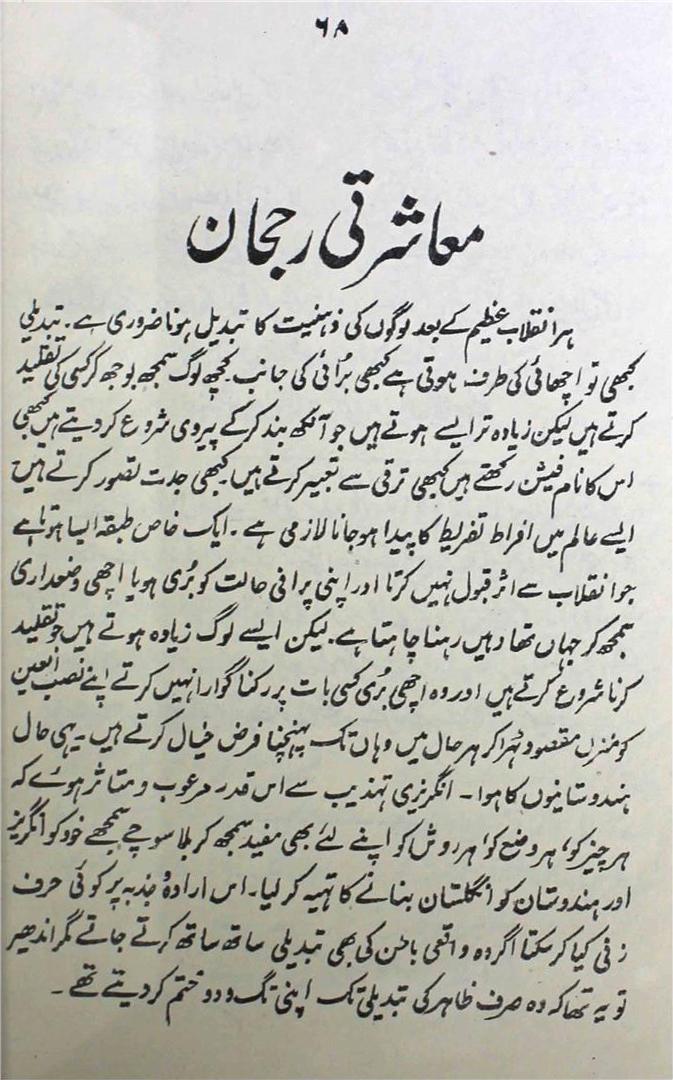 ۶۸
معاشرتی رجحان
ہر انقلاب عظیم کے بعد لوگوں کی ذہنیت کا تبدیل ہونا ضروری ہے۔ تبدیلی
کبھی تو اچھائی کی طرف ہوتی ہے کبھی برائی کی جانب۔ کچھ لوگ سمجھ بوجھ کر کسی کی تقلید
کرتے ہیں لیکن زیادہ تر ایسے ہوتے ہیں جو آنکھ بند کرکے پیروی شروع کر دیتے ہیں کبھی
اس کا نام فیشن رکھتے ہیں کبھی ترقی سے تعبیر کرتے ہیں۔ کبھی جدت تصور کرتے ہیں
ایسے عالم میں افراط تفریط کا پیدا ہو جانا لازمی ہے۔ ایک خاص طبقہ ایسا ہوتا ہے
جو انقلاب سے اثر قبول نہیں کرتا اور اپنی پرانی حالت کو بُری ہو یا اچھی وضعداری
سمجھ کر جہاں تھا وہیں رہنا چاہتا ہے۔ لیکن ایسے لوگ زیادہ ہوتے ہیں جو تقلید
کرنا شروع کرتے ہیں اور وہ اچھی بُری کسی بات پر رکنا گوارا نہیں کرتے اپنے نصب العین
کو منزل مقصود ٹہرا کر ہر حال میں وہاں تک پہنچنا فرض خیال کرتے ہیں۔ یہی حال
ہندوستانیوں کا ہوا۔ انگریزی تہذیب سے اس قدر مرعوب و متاثر ہوئے کہ
ہر چیز کو' ہر وضع کو' ہر روش کو اپنے لئے بھی مفید سمجھ کر بلا سوچے سمجھے خود کو انگریز
اور ہندوستان کو انگلستان بنانے کا تہیہ کر لیا۔ اس ارادہ و جذبہ پر کوئی حرف
زنی کیا کر سکتا اگر وہ واقعی باطن کی بھی تبدیلی ساتھ ساتھ کرتے جاتے مگر اندھیر
تو یہ تھا کہ وہ صرف ظاہر کی تبدیلی تک اپنی تگ و دو ختم کر دیتے تھے۔